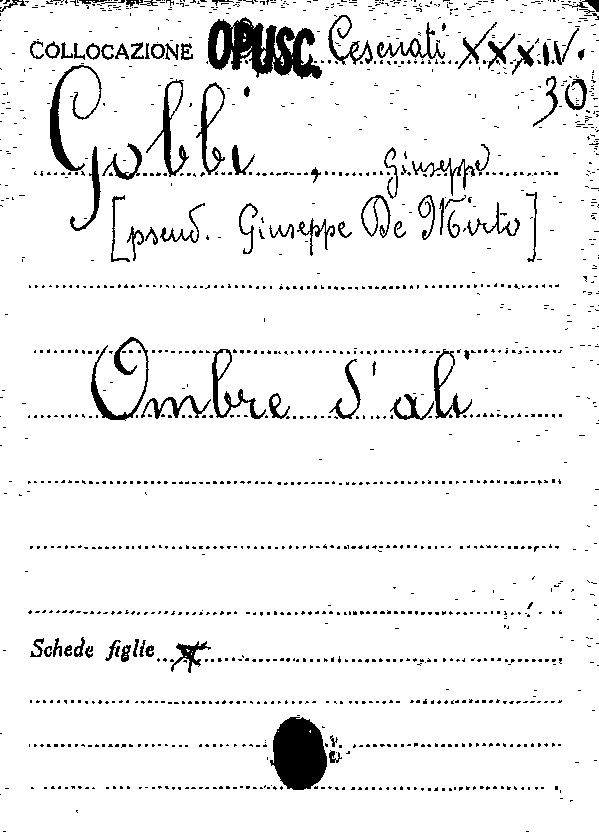 COLLOCAZIONE OPUSC. Cesenati XXXIV.
30
Gobbi, Giuseppe
[pseud. Giuseppe De Mirto]
Ombre d'ali
Schede figlie